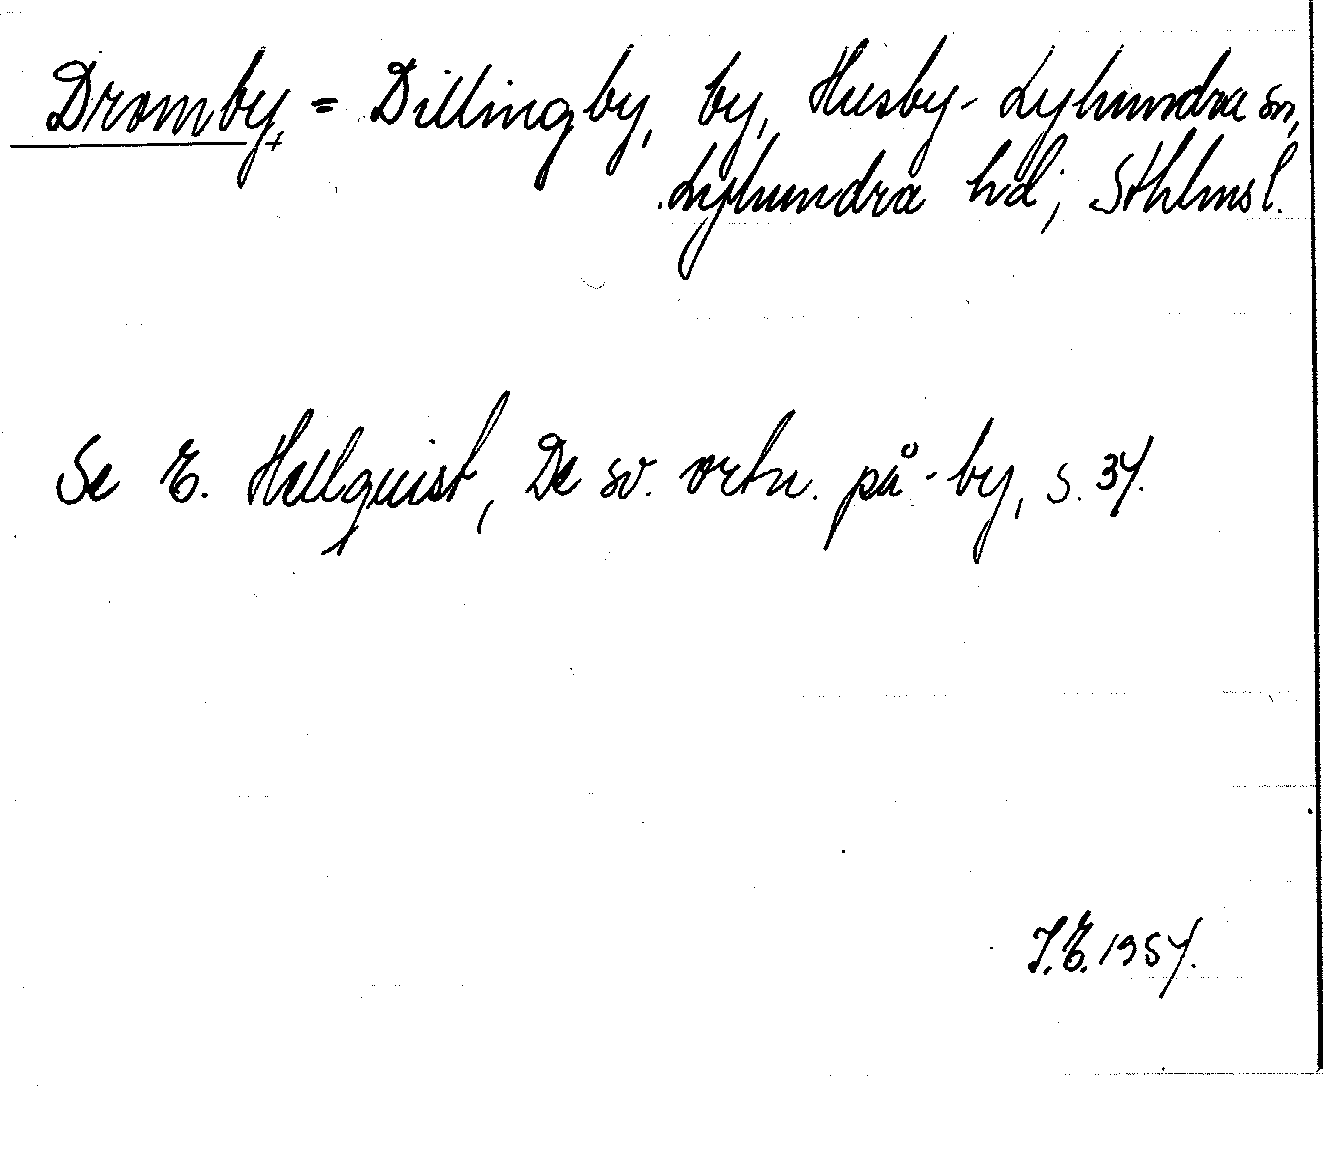 Dromby, + = Dillingby, by, Husby-Lyhundra sn,
Lyhundra hd; Sthlms l.
Se E. Hellquist, De sv. ortn. på -by, s. 37.
J.E. 1957.